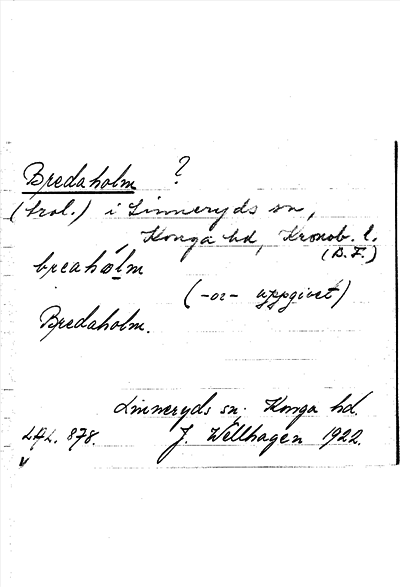 Bredaholm ?
(trol.) i Linneryds sn,
Konga hd, Kronob. l.
(D.F.)
breahólm
(-o- uppgivet)
Bredaholm.
Linneryds sn. Konga hd.
LAL. 878. J. Wellhagen 1922.